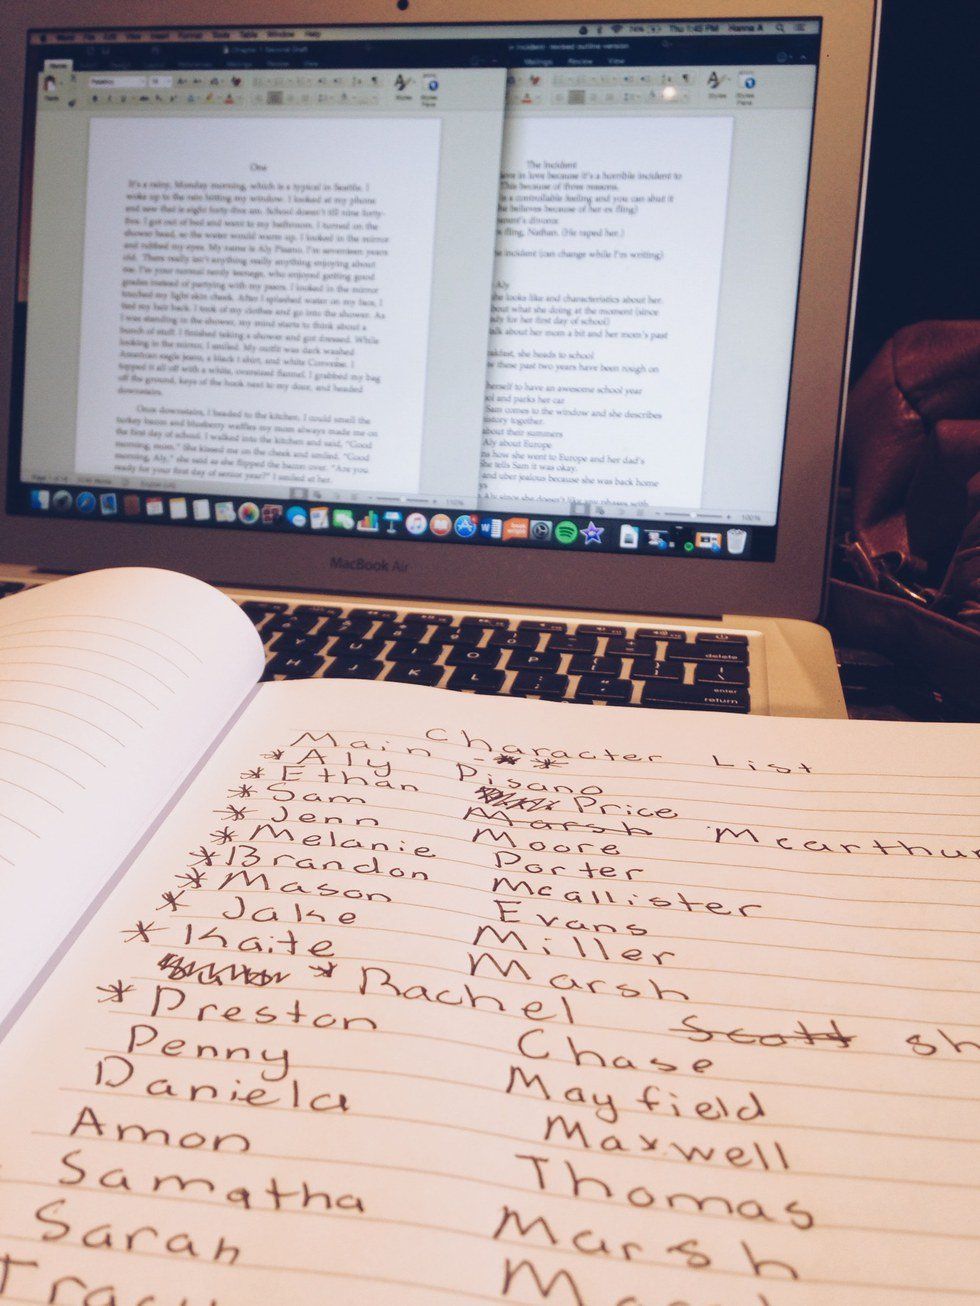 Thu 1:45 PM Hanna A
Chapter 1 Second Draft
incident- revised outline version
Mailings Review View
One
It's a rainy, Monday morning, which is a typical in Seattle. I
woke up to the rain hitting my window. I looked at my phone
and saw that is eight forty-five am. School doesn't till nine forty-
five. I got out of bed and went to my bathroom. I turned on the
shower head, so the water would warm up. I looked in the mirror
and rubbed my eyes. My name is Aly Pisano, I'm seventeen years
old. There really isn't anything really anything enjoying about
me. I'm your normal nerdy teenage, who enjoyed getting good
grades instead of partying with my peers. I looked in the mirror
touched my light skin cheek. After I splashed water on my face, I
tied my hair back. I took of my clothes and go into the shower. As
I was standing in the shower, my mind starts to think about a
bunch of stuff. I finished taking a shower and got dressed. While
looking in the mirror, I smiled. My outfit was dark washed
American eagle jeans, a black t shirt, and white Converse. I
topped it all off with a white, oversized flannel. I grabbed my bag
off the ground, keys of the hook next to my door, and headed
downstairs.
Once downstairs, I headed to the kitchen. I could smell the
turkey bacon and blueberry waffles my mom always made me on
the first day of school. I walked into the kitchen and said, "Good
morning, mom." She kissed me on the cheek and smiled, "Good
morning, Aly," she said as she flipped the bacon over. "Are you
ready for your first day of senior year?" I smiled at her.
The Incident
in love because it's a horrible incident to
This because of three reasons.
is a controllable feeling and you can shut it
she believes because of her ex fling)
parent's divorce
fling, Nathan. (He raped her.)
incident (can change while I'm writing)
Aly
she looks like and characteristics about her.
about what she doing at the moment (since
ready for her first day of school)
talk about her mom a bit and her mom's past
breakfast, she heads to school
these past two years have been rough on
herself to have an awesome school year
and parks her car
Sam comes to the window and she describes
history together.
about their summers
Aly about Europe
how she went to Europe and her dad's
She tells Sam it was okay.
and uber jealous because she was back home
Aly since she doesn't like any phases with
100%
MacBook Air
Y U I O P
H J K L
delete
enter
return
Main Character List
* Aly Pisano
* Ethan Price
* Sam Marsh Mcarthur
* Jenn Moore
* Melanie Porter
* Brandon Mcallister
* Mason Evans
* Jake Miller
* Kaite Marsh
* Rachel Scott sh
* Preston Chase
Penny Mayfield
Daniela Maxwell
Amon Thomas
Samatha Marsh
Sarah